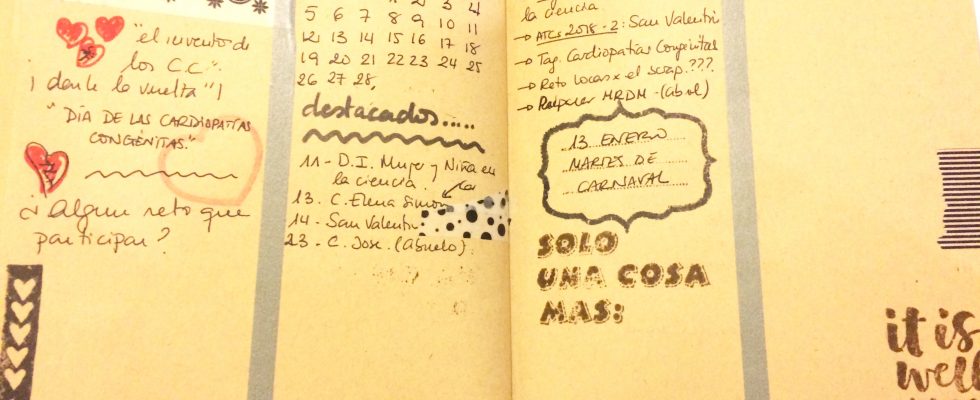 "el invento de
los C.C".
¡dale la vuelta"!
"DÍA DE LAS CARDIOPATÍAS
CONGÉNITAS."
¿Algun reto que
participar?
2 3 4
5 6 7 8 9 10 11
12 13 14 15 16 17 18
19 20 21 22 23 24 25
26 27 28,
destacados.....
11 - D.I. Mujer y Niña en
la ciencia.
13. C. Elena Simon
14 - San Valentin
23 - C. Jose. (abuelo)
la ciencia.
→ ATCs 2018-2: San Valentin
→ Tag. Cardiopatias Congenitas
→ Reto locas x el scrap.???
→ MRDM -(abril)
13 ENERO
MARTES DE
CARNAVAL
SOLO
UNA COSA
MAS:
it is
well